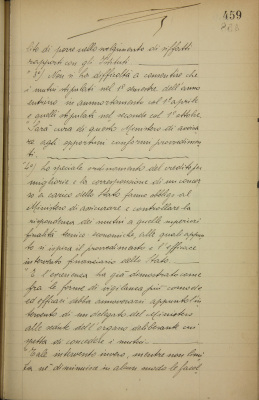 459
di porre nello svolgimento di siffatti
rapporti con gli Istituti.
Non si ha difficoltà a consentire che
i mutui stipulati nel 1° semestre dell'anno
entrino in ammortamento col 1° agosto
e quelli stipulati nel secondo col 1° ottobre.
Sarà cura di questo Ministero di avviare
re agli opportuni conformi provvedimen
ti.
Lo speciale ordinamento del credito di
miglioria e la corresponsione di un concor
so a carico dello Stato fanno obbligo al
Ministero di assicurare e controllare la
rispondenza dei mutui a quelle superiori
finalità tecnico economiche, alle quali appun
to si ispira il provvedimento e l'efficace
intervento finanziario dello Stato.
E l'esperienza ha già dimostrato come
fra le forme di vigilanza più comode
ed efficaci debba annoverarsi appunto l'in
tervento di un delegato del Ministero
alle sedute dell'organo deliberante cui
spetta di concedere i mutui.
Tale intervento invero, mentre non limi
ta né diminuisce in alcun modo le facol